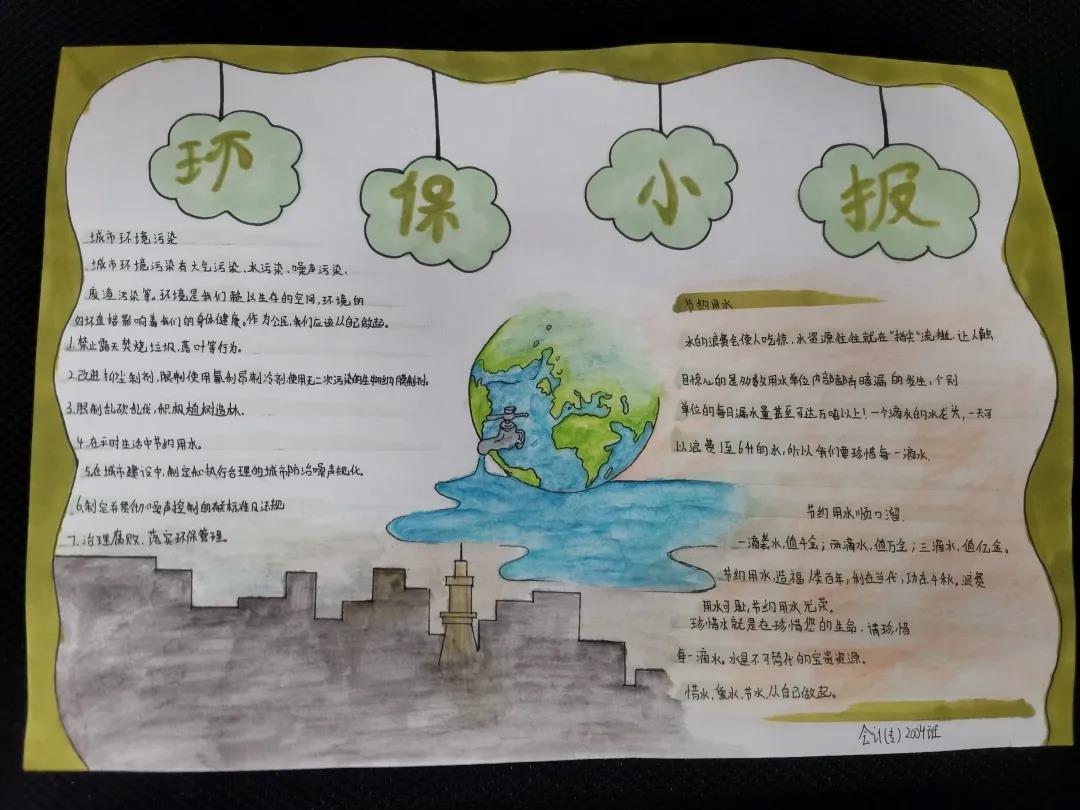 环保小报
城市环境污染
城市环境污染有大气污染、水污染、噪声污染、
废渣污染等。环境是我们赖以生存的空间,环境的
好坏直接影响着我们的身体健康。作为公民,我们应该从自己做起。
1.禁止露天焚烧垃圾,落叶等行为。
2.改进抑尘制剂,限制使用氟利昂制冷剂,使用无二次污染的生物制剂。
3.限制乱砍乱伐,积极植树造林.
4.在平时生活中节约用水。
5.在城市建设中,制定和执行合理的城市防治噪声规化
6.制定并贯彻噪声控制的有关标准及法规
7.治理腐败、落实环保管理
节约用水
水的浪费会使人吃惊,水资源往往就在"指尖"流逝,让人触
目惊心的是多数用水单位内部都有暗漏的发生,个别
单位的每日漏水量甚至可达万吨以上!一个滴水的水龙头,一天可
以浪费1至6升的水,所以我们要珍惜每一滴水.
节约用水顺口溜
一滴水,值千金;两滴水,值万金;三滴水,值亿金。
节约用水,造福人类百年,利在当代,功在千秋。浪费
用水可耻,节约用水光荣。
珍惜水就是在珍惜您的生命.请珍惜
每一滴水。水是不可替代的宝贵资源。
惜水,爱水,节水,从自己做起。
会计(专)2004班